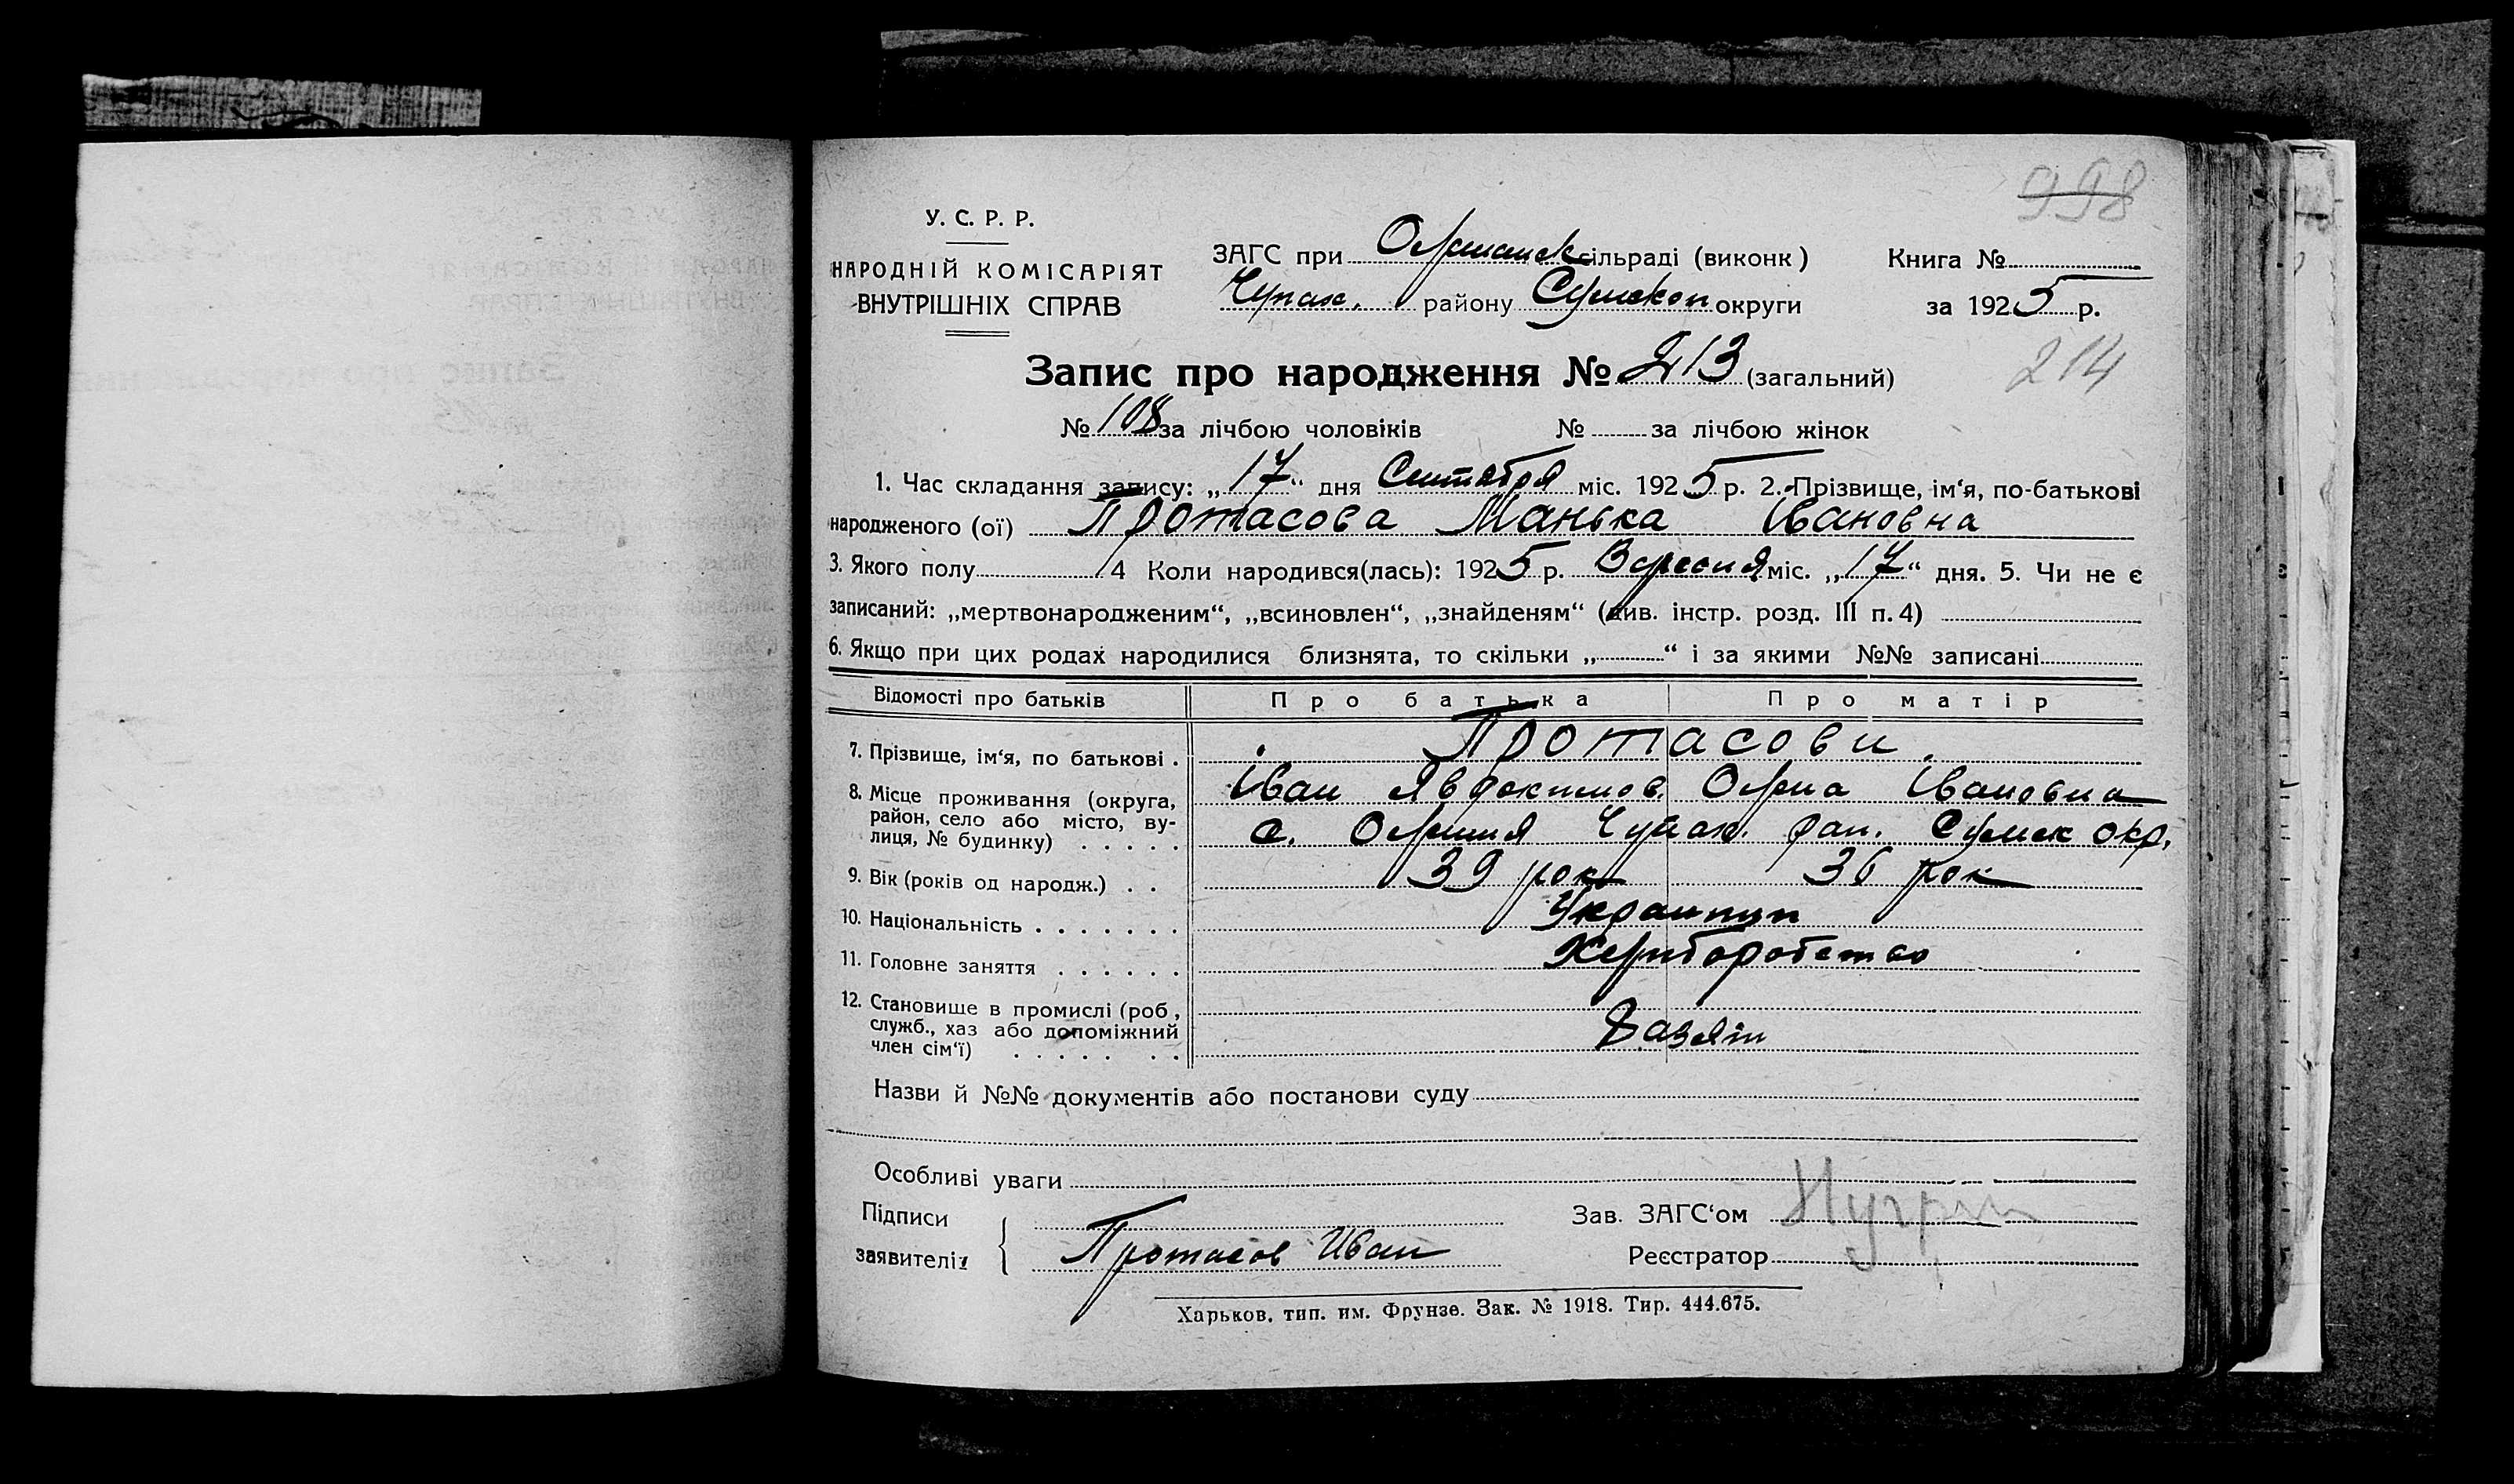 998
У. С. Р. Р.
НАРОДНІЙ КОМІСАРІЯТ
ВНУТРІШНІХ СПРАВ
ЗАГС при сільраді (виконк)
Чупах. району Сумской округи
Книга №
за 1925 р.
Запис про народження № 213 (загальний)
214
№ 108 за лічбою чоловіків № за лічбою жінок
1. Час складання запису: „17“ дня Сентября міс. 1925 р. 2. Прізвище, ім‘я, по-батькові
народженого (ої) Протасова Манька Івановна
3. Якого полу 4 Коли народився(лась): 1925 р. Вересня міс. „17“ дня. 5. Чи не є
записаний: „мертвонародженим“, „всиновлен“, „знайденям“ (див. інстр. розд. III п. 4)
6. Якщо при цих родах народилися близнята, то скільки „ “ і за якими №№ записані
Відомості про батьків Про батька Про матір
7. Прізвище, ім‘я, по батькові . Протасови
Іван Явдокимов. Івановна
8. Місце проживання (округа,
район, село або місто, ву-
лиця, № будинку) . . . . . с. Чупах. рай. Сумск окр.
9. Вік (років од народж.) . . 39 рок 36 рок
10. Національність . . . . . . .
11. Головне заняття . . . . . . Херлборобство
12. Становище в промислі (роб,
служб., хаз або допоміжний
член сім‘ї) . . . . . . .
Назви й №№ документів або постанови суду
Особливі уваги
Підписи
заявителів
Протасов Иван
Зав. ЗАГС‘ом
Реєстратор
Харьков, тип. им. Фрунзе. Зак. № 1918. Тир. 444.675.